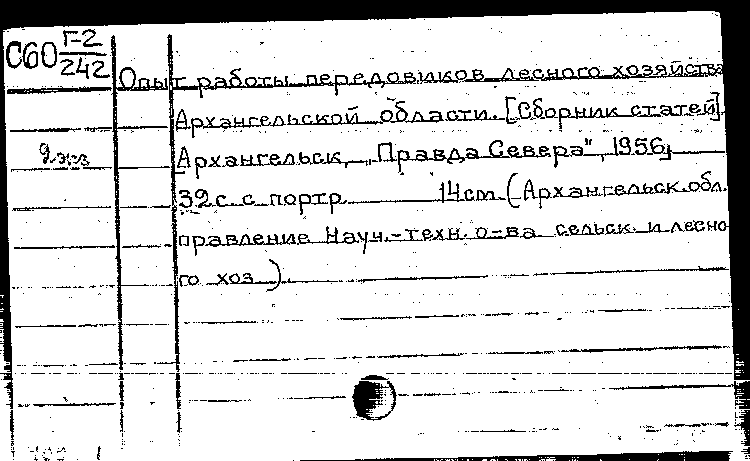 С60 Г-2
242
Опыт работы передовиков лесного хозяйства
Архангельской области. [Сборник статей].
2 экз
Архангельск, „Правда Севера", 1956,
32 с. с портр. 14 см. (Архангельск. обл.
правление Науч.-техн. о-ва сельск. и лесно
го хоз.).